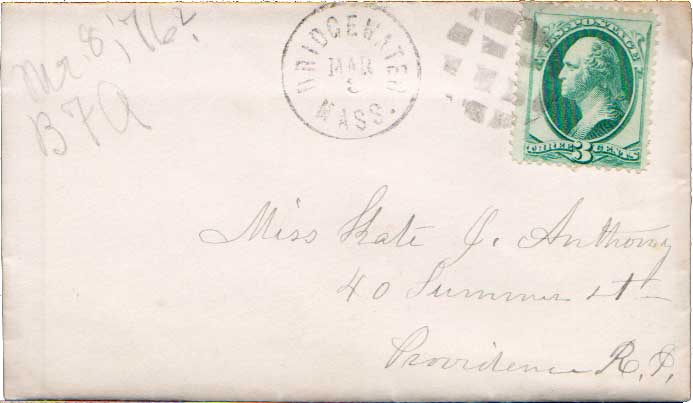 Mr. 8, '76.
B F A
BRIDGEWATER
MAR
8
MASS.
U.S. POSTAGE
THREE 3 CENTS
Miss Kate J. Anthony
40 Summer St
Providence R.I.